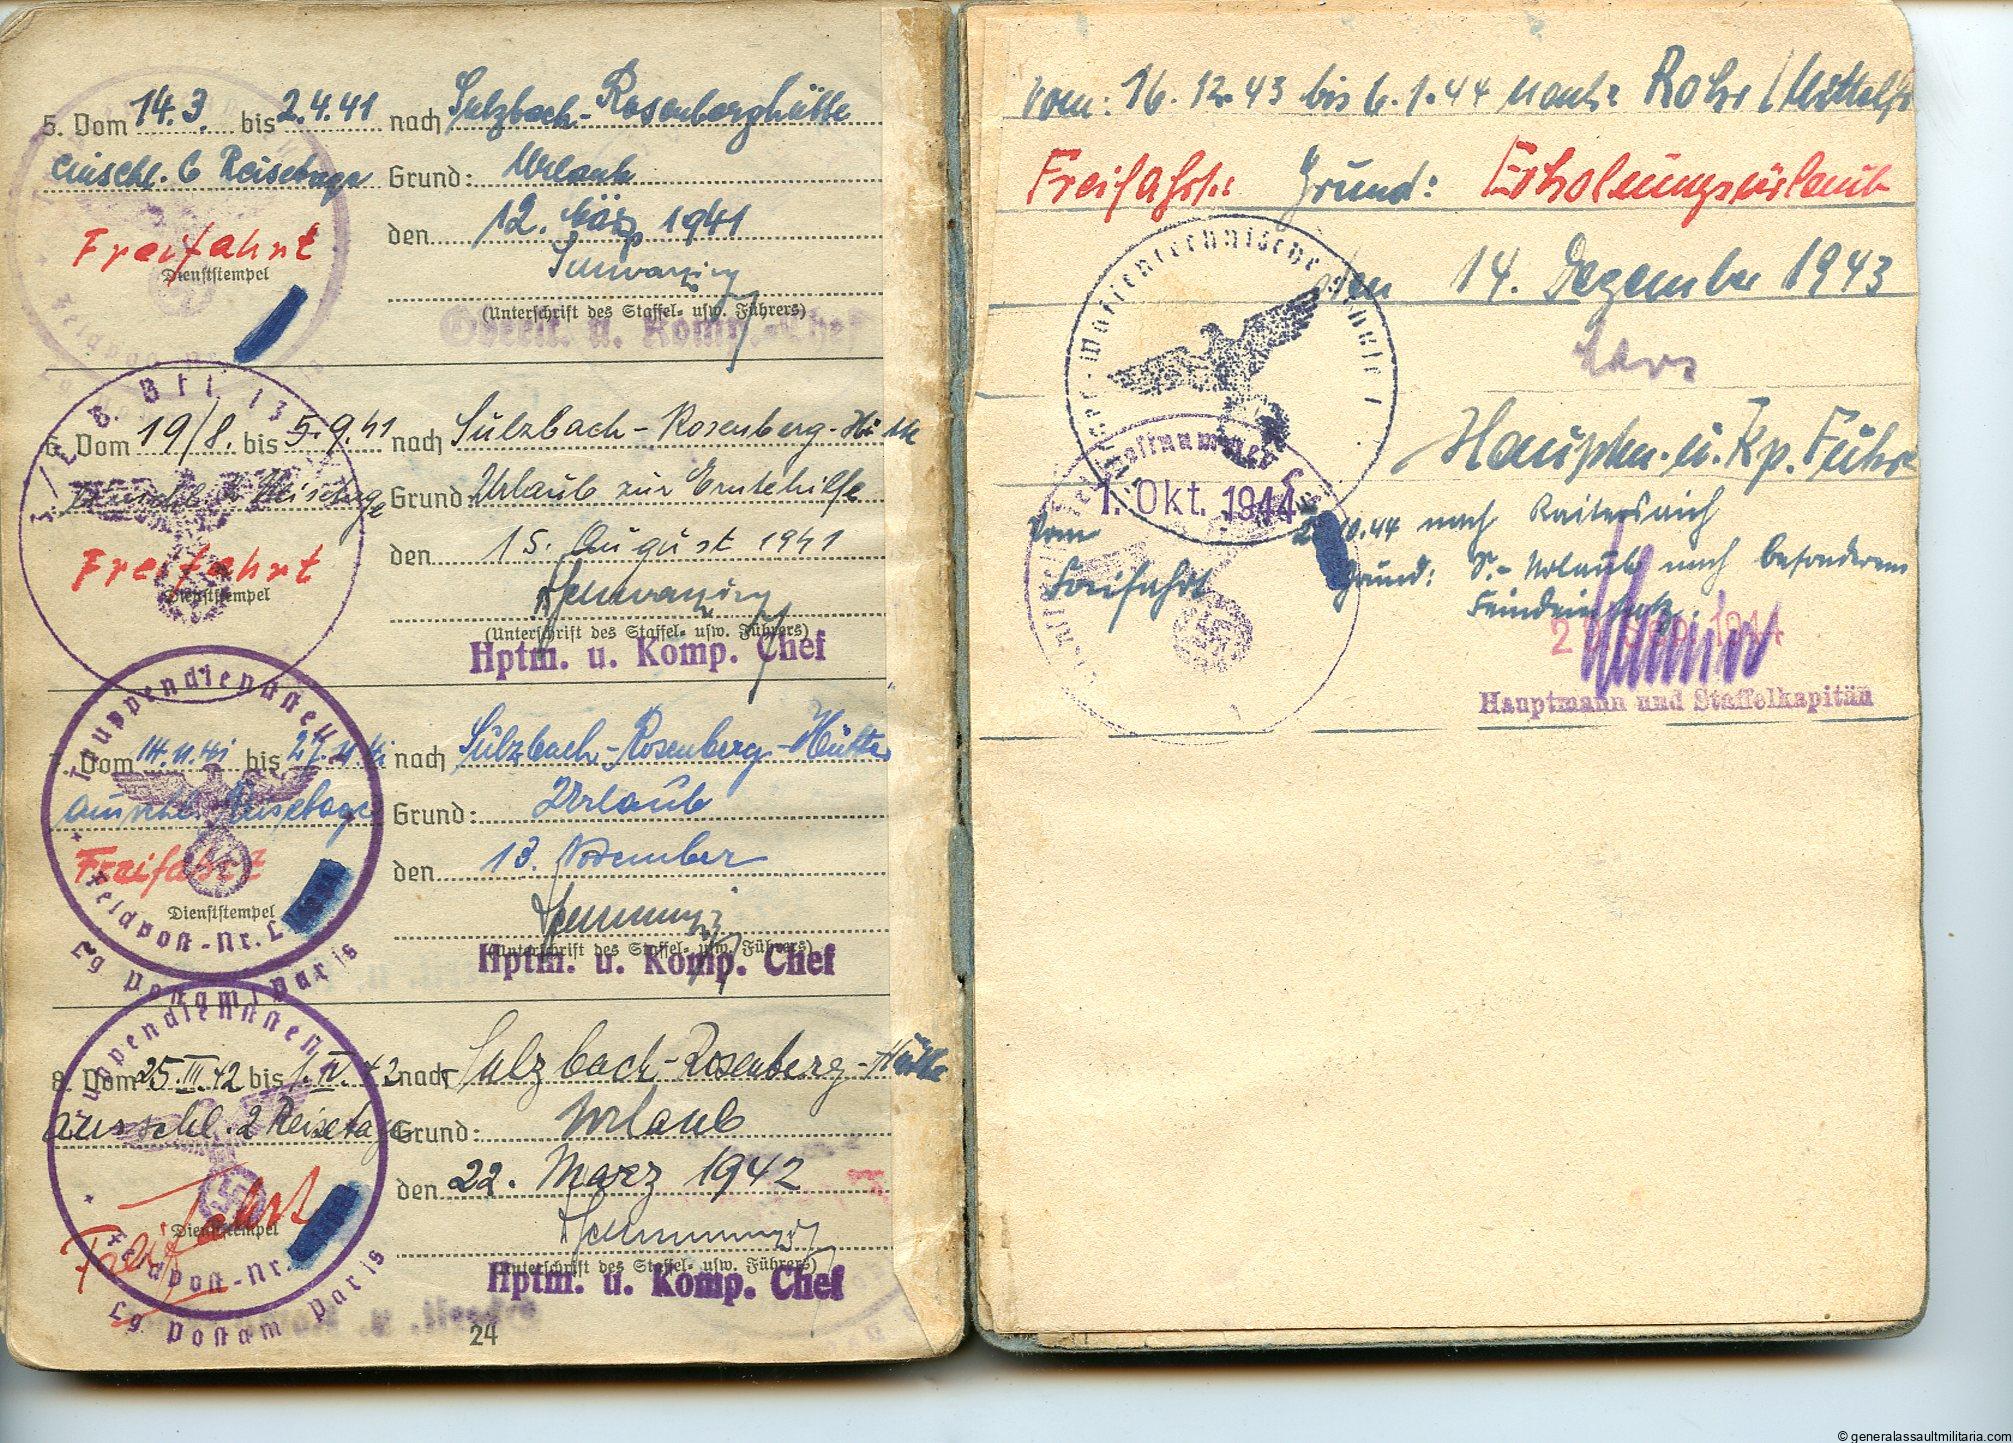 5. Vom 14.3. bis 2.4.41 nach Sulzbach-Rosenberghütte
einschl. 6 Reisetage Grund: Urlaub
den 12. März 1941
Freifahrt
Dienststempel
(Unterschrift des Staffel- usw. Führers)
Oberlt. u. Komp.-Chef
6. Vom 19/8. bis 5.9.41 nach Sulzbach-Rosenberg-Hütte
Reisetage Grund: Urlaub zur Erntehilfe
den 15. August 1941
Freifahrt
Dienststempel
(Unterschrift des Staffel- usw. Führers)
Hptm. u. Komp. Chef
7. Vom 14.11.41 bis 27.11.41 nach Sulzbach-Rosenberg-Hütte
ausschl. Reisetage Grund: Urlaub
den 13. November
Freifahrt
Dienststempel
Truppendienststelle
Feldpost-Nr. L
Lg Postamt Paris
(Unterschrift des Staffel- usw. Führers)
Hptm. u. Komp. Chef
8. Vom 25.III.42 bis 1.IV.42 nach Sulzbach-Rosenberg-Hütte
ausschl. 2 Reisetage Grund: Urlaub
den 22. März 1942
Freifahrt
Dienststempel
Truppendienststelle
Feldpost-Nr.
Lg Postamt Paris
(Unterschrift des Staffel- usw. Führers)
Hptm. u. Komp. Chef
24
vom: 16.12.43 bis 6.1.44 nach: Rohr / Mittelfr
Freifahrt: Grund: Erholungsurlaub
den 14. Dezember 1943
Hauptm. u. Kp. Führ
Feldpostnummer L
vom 1. Okt. 1944 10.44 nach
Freifahrt Grund: S.-Urlaub nach besonderem
Feindeinsatz.
Hauptmann und Staffelkapitän
© generalassaultmilitaria.com